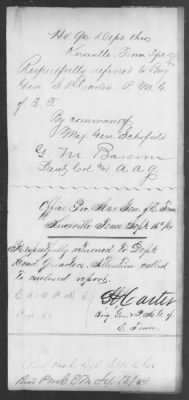 Hd Qrs Dept Ohio
Knoxville, Tenn Sept
Respectfully referred to Brig
Gen S P Carter P. M. G.
of E. T.
By command of
Maj Gen Schofield
G. M. Bascom
Lieut Col and A. A. G
Office Pro Mar Gen of E Tenn
Knoxville Tenn Sept 15th 64
Respectfully returned to Dept
Head Quarters. Attention called
to enclosed report.
S P Carter
Brig. Gen & P. M. G. of
E. Tenn
Recd P.M.G. E.T. Sep 15/64